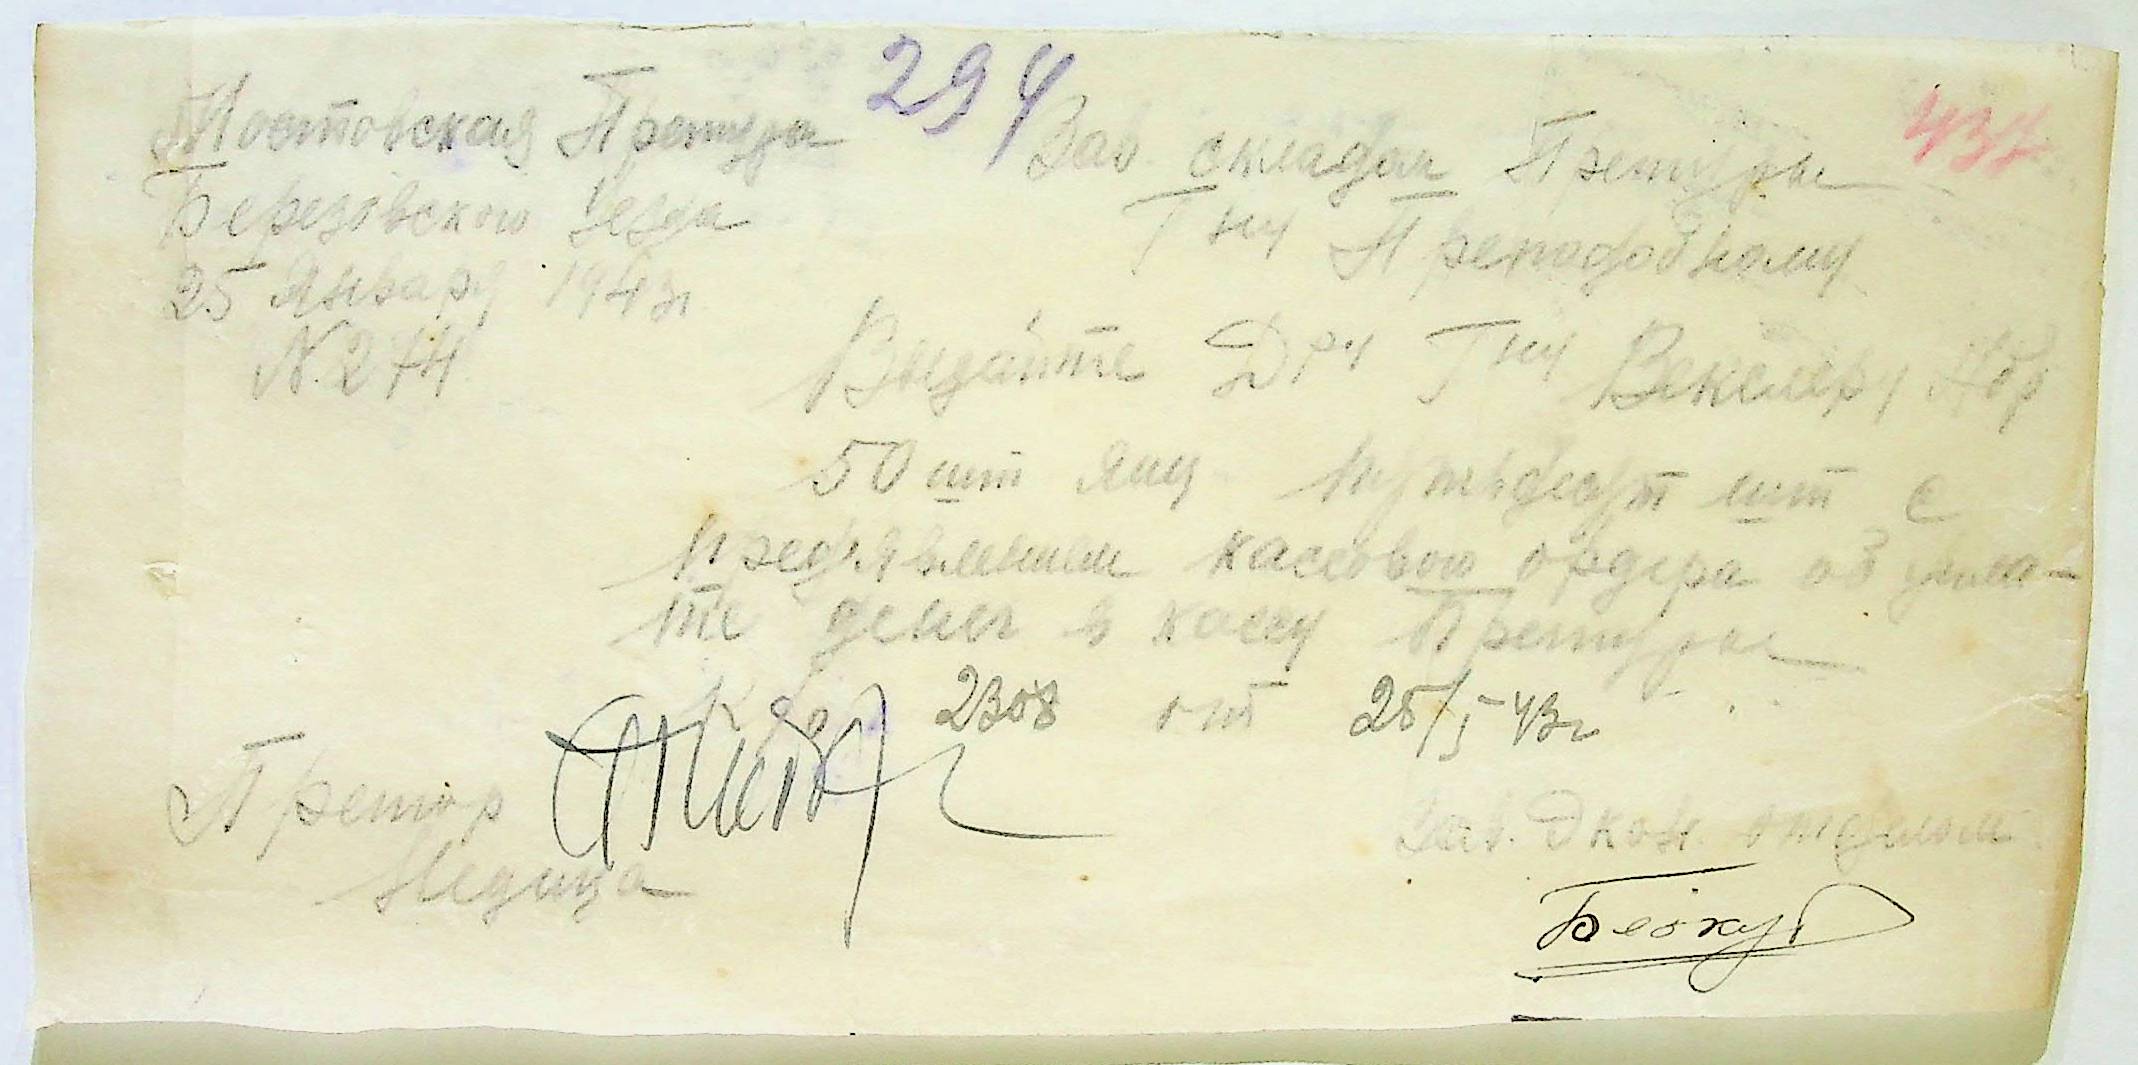 294
437
Мостовская Претура
Березовского уезда
25 Января 1943г.
N. 274
Зав. складом Претуры
Гну Преподобному
Выдайте Дру Гну Векслеру
50 шт яиц пятьдесят шт с
предявлением кассового ордера об упла-
те денег в кассу Претуры
2308 от 25/I 43г
Претор
Недица
Зав. Экон. отделом